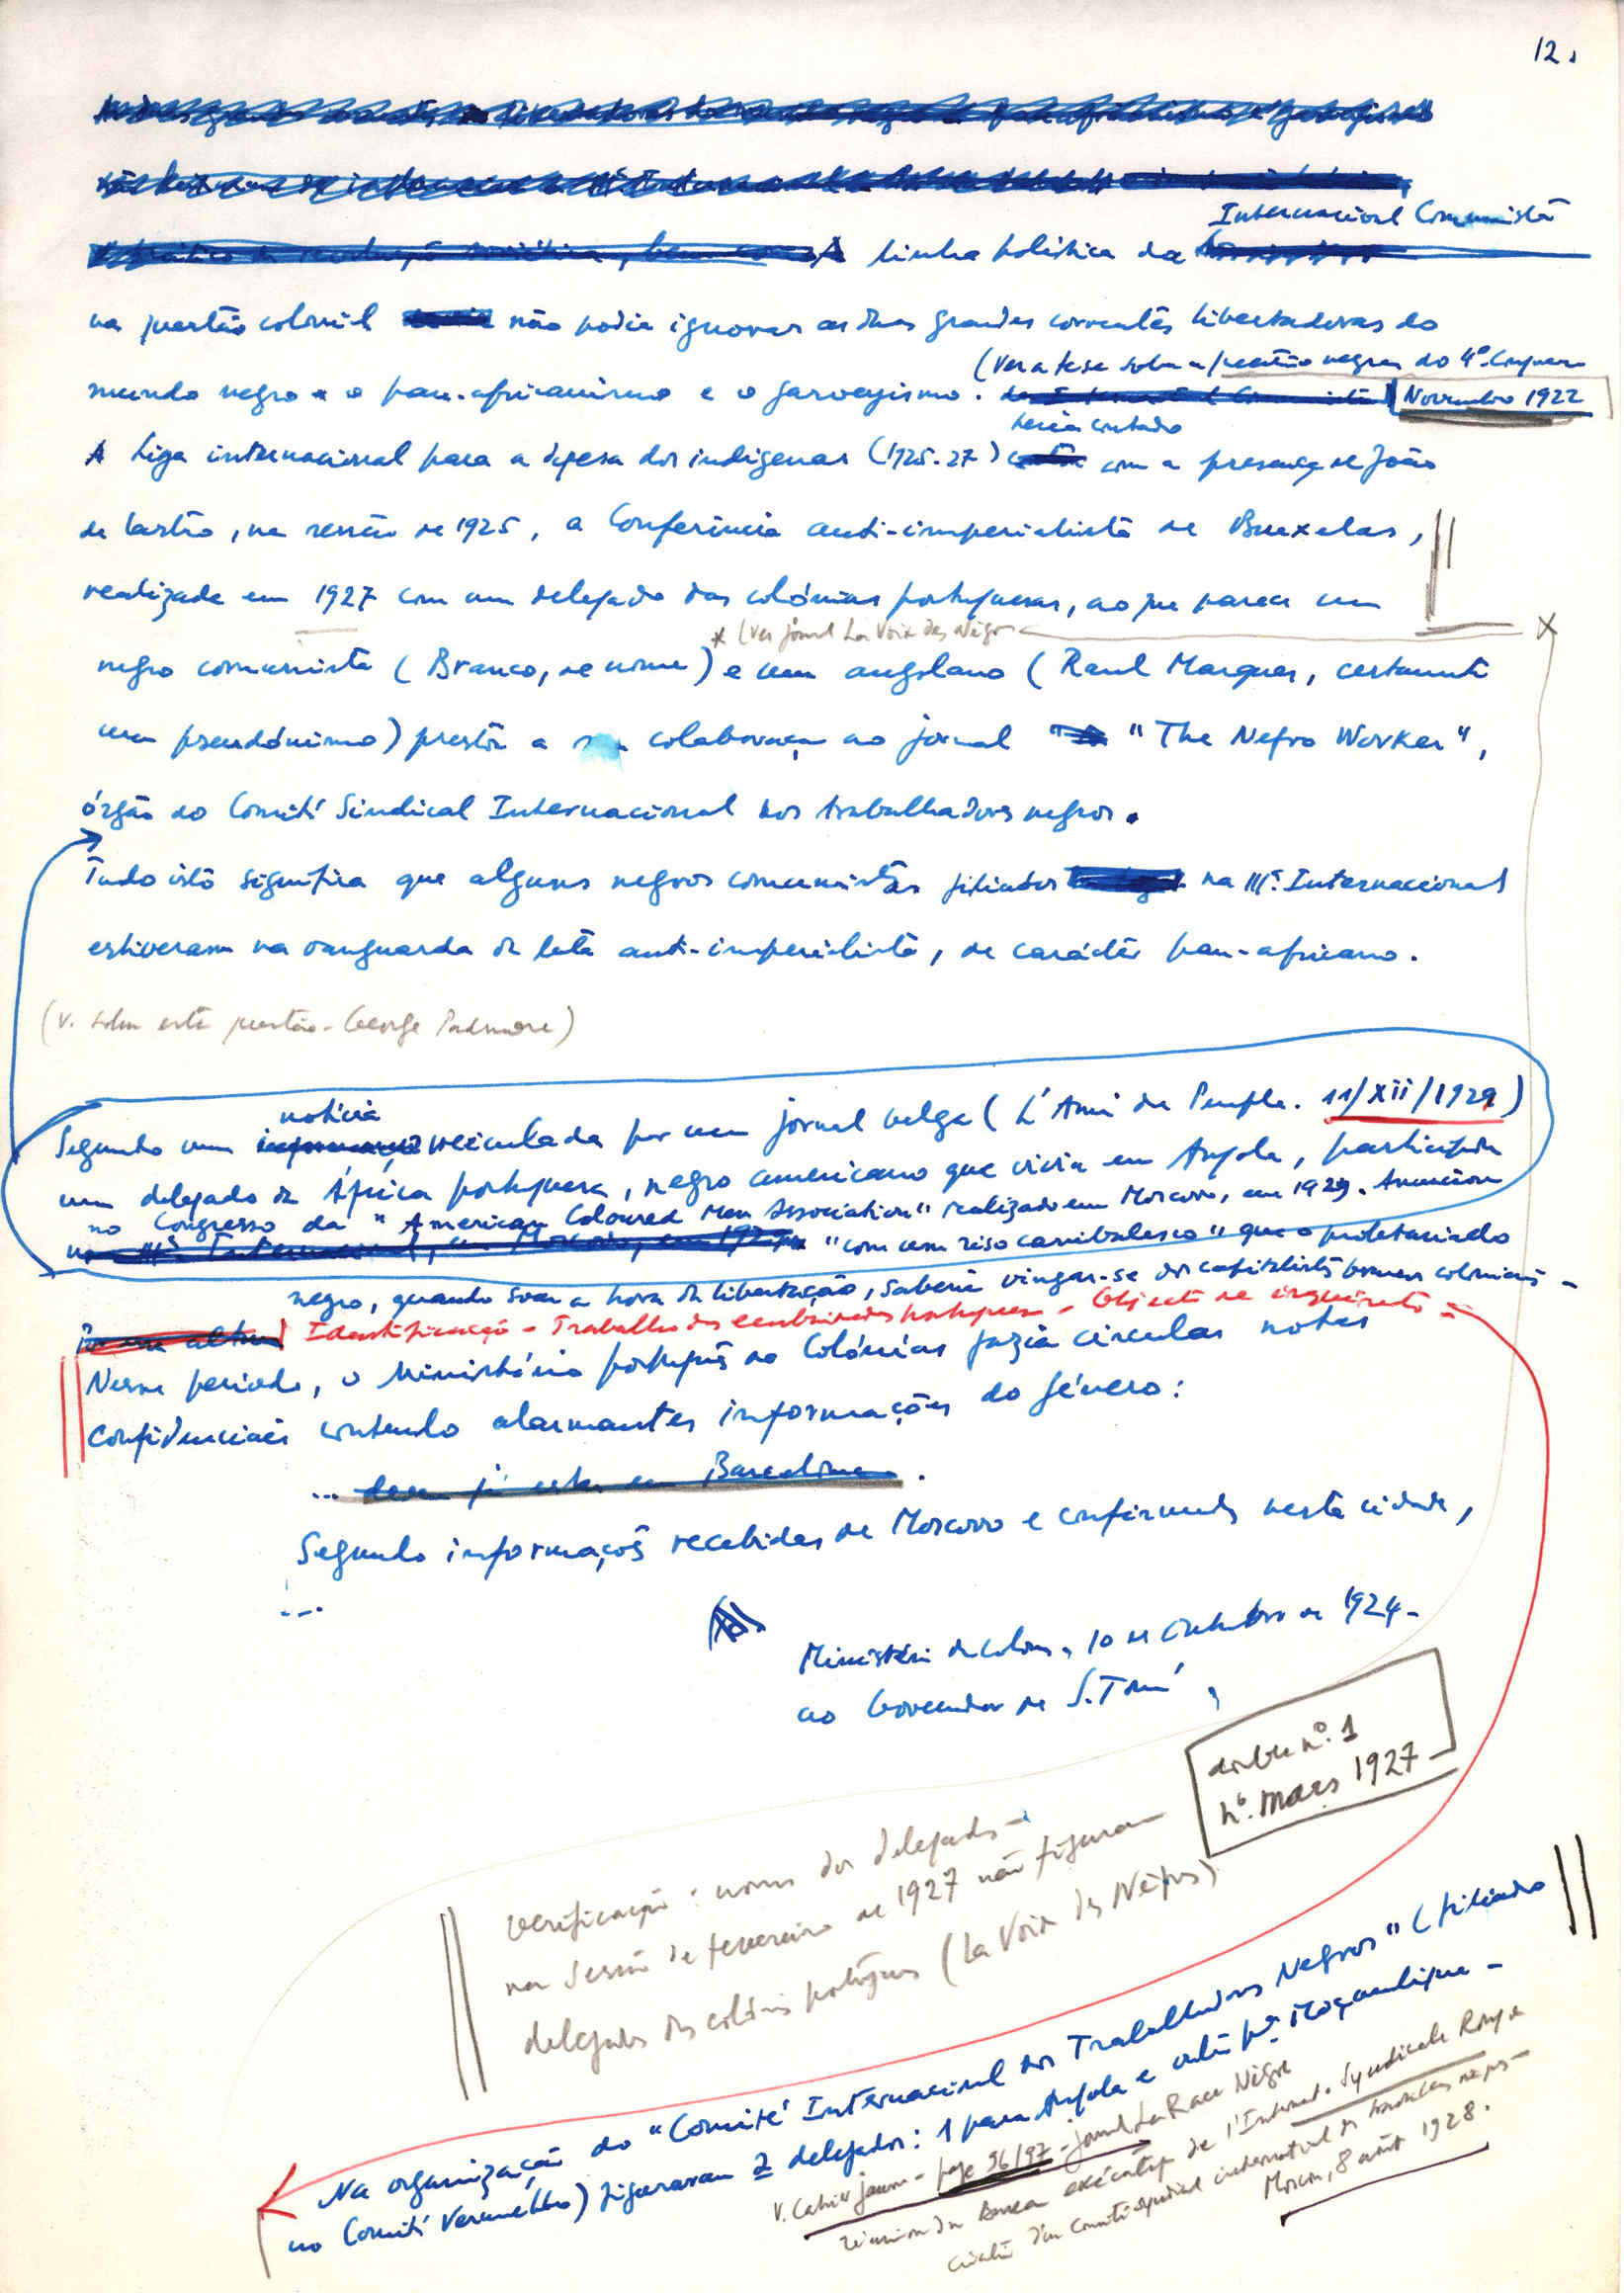 12.
Internacional Comunista
linha política da
na questão colonial não podia ignorar as duas grandes correntes libertadoras do
(ver a tese sobre a questão negra do 4º Congresso
mundo negro o pan-africanismo e o garveyismo. Novembro 1922
teria contado
A Liga internacional para a defesa dos indígenas (1925-27) com a presença de João
de Castro, na sessão de 1925, a Conferência anti-imperialista de Bruxelas,
realizada em 1927 com um delegado das colónias portuguesas, ao que parece um
* (Ver jornal La Voix des Nègres
negro comunista (Branco, de nome) e um angolano (Raul Marques, certamente
um pseudónimo) presta a sua colaboração ao jornal "The Negro Worker",
órgão do Comité Sindical Internacional dos trabalhadores negros.
Tudo isto significa que alguns negros comunistas filiados na IIIª Internacional
estiveram na vanguarda da luta anti-imperialista, de carácter pan-africano.
(v. sobre esta questão - George Padmore)
notícia
Segundo uma veiculada por um jornal belga (L'Ami du Peuple. 11/XII/1929)
um delegado da África portuguesa, negro americano que vivia em Angola, participou
no Congresso da "American Coloured Men Association" realizado em Moscovo, em 1929. Anunciou
"com um riso canibalesco" que o proletariado
negro, quando soar a hora da libertação, saberá vingar-se dos capitalistas brancos coloniais -
Identificação - Trabalho dos portugueses - Objecto de inquérito -
Nesse período, o Ministério português das Colónias fazia circular notas
confidenciais contendo alarmantes informações do género:
... deve já estar em Barcelona.
Segundo informações recebidas de Moscovo e confirmadas nesta cidade,
...
Ministério das Colónias, 10 de Outubro de 1924 -
ao Governador de S. Tomé
nº. 1
nº. mars 1927
Verificação: nomes dos delegados -
na sessão de fevereiro de 1927 não figuram
delegados das colónias portuguesas (La Voix des Nègres)
Na organização do "Comité Internacional dos Trabalhadores Negros" (filiado
no Comité Vermelho) figuravam 2 delegados: 1 para Angola e outro pª Moçambique -
V. Cahier jaune - page 96/97 - journal La Race Nègre
réunion du Bureau exécutif de l'Internat. Syndicale Rouge
création d'un Comité syndical international des travailleurs nègres -
Moscou, 8 août 1928.